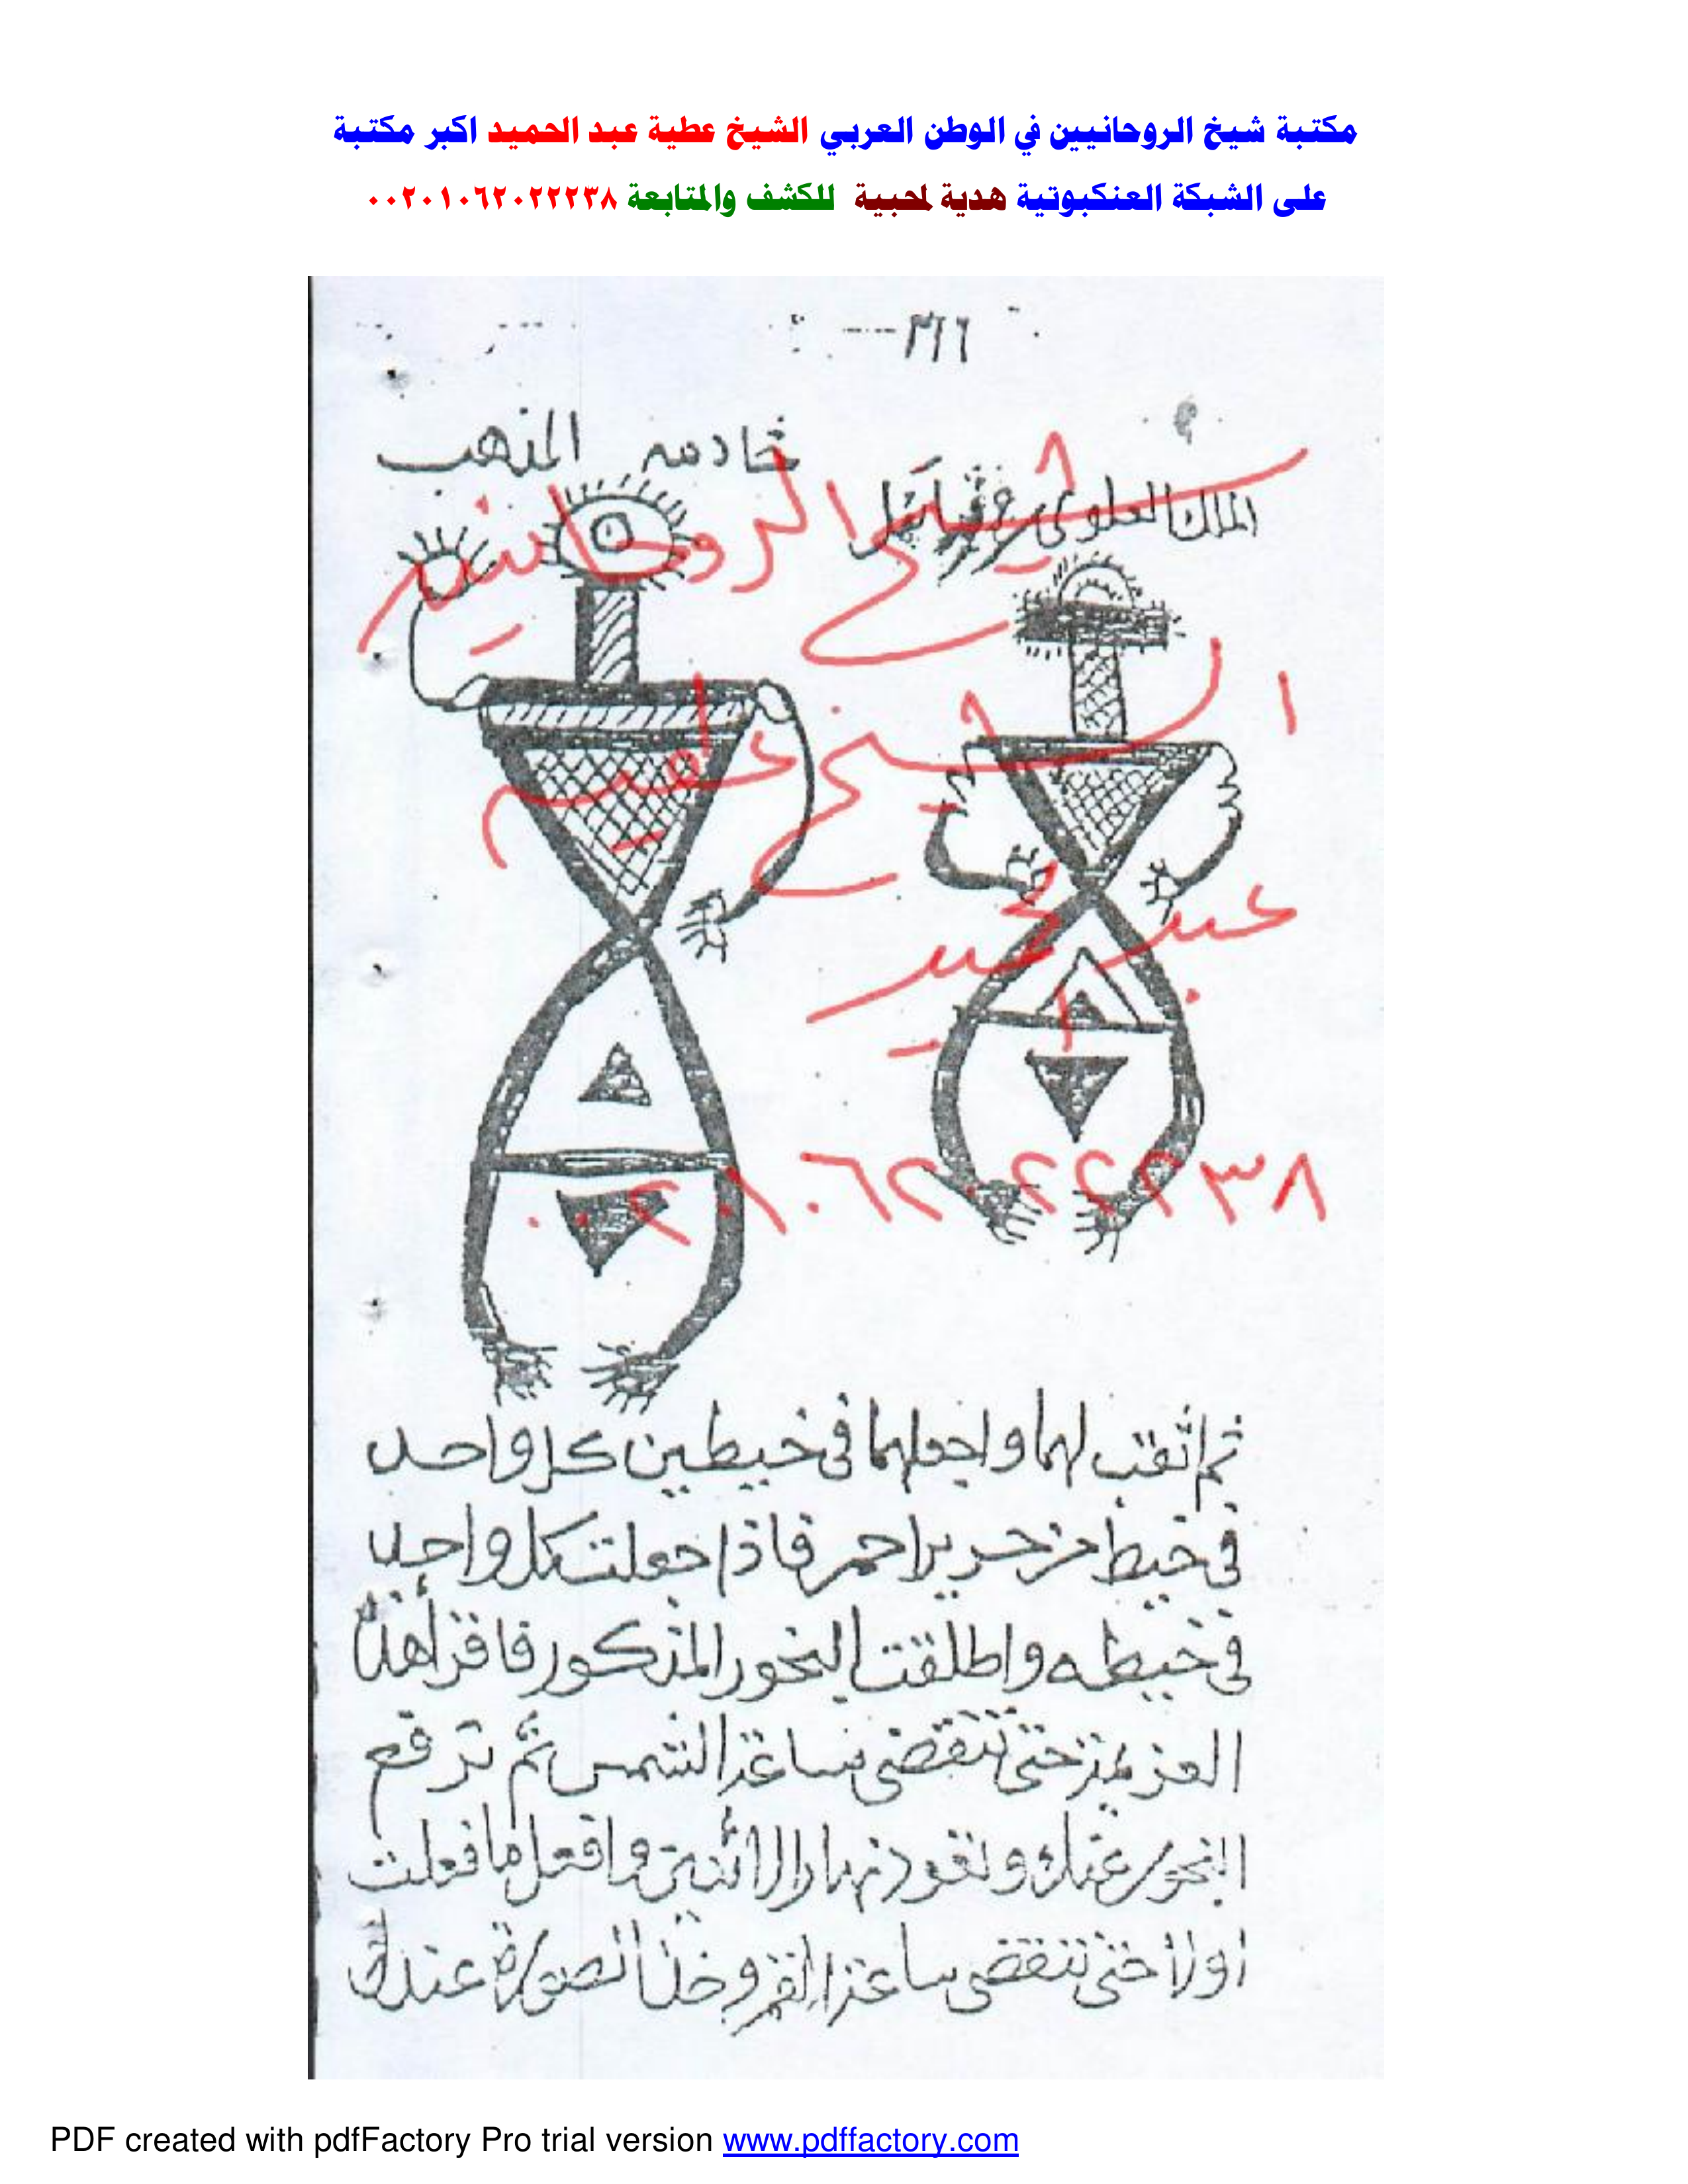 مكتبة شيخ الروحانيين في الوطن العربي الشيخ عطية عبد الحميد اكبر مكتبة
على الشبكة العنكبوتية هدية لمحبية للكشف والمتابعة ٠٠٢٠١٠٦٢٠٢٢٢٣٨
٣٦٦
خادمه المذهب
الملك العلوى
شيخ الروحانيين
الشيخ عطيه
عبد الحميد
٠٠٢٠١٠٦٢٠٢٢٢٣٨
ثم اثقب لهما واجعلهما فى خيطين كل واحد
فى خيط من حرير احمر فاذا جعلت كل واحد
فى خيطه واطلقت البخور المذكور فاقرأ هذه
العزيمة حتى تنقضى ساعة الشمس ثم ترفع
البخور عنك وتعود نهار الاثنين وافعل ما فعلت
اولا حتى تنقضى ساعة القمر وخذ الصورة عندك
PDF created with pdfFactory Pro trial version www.pdffactory.com